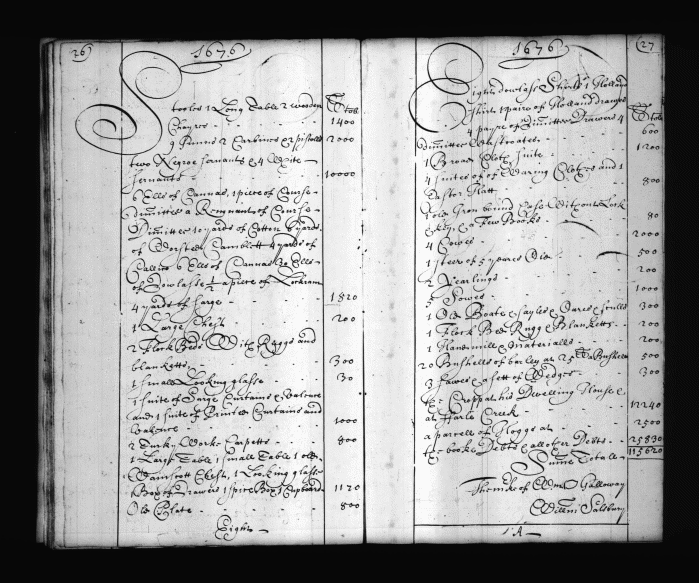 26
1676
Stooles 1 Long Table 2 wooden
Chayres - - - 1400
9 Gunns 2 Carbines & 2 pistolls 2000
two Negroe servants & 4 White
servants - - - 10000
6 Ells of Canvas, 1 piece of Course
dimittee a Remnant of Course
Dimittee 10 yards of Cotten 6 yards
of Worsted Camblett 4 yards of
Callico 6 Ells of Canvas 30 Ells
of Dowlasse ½ a piece of Lockram
4 yards of Sarge - 1820
1 Large Chest - 200
2 Flock Beds with Ruggs and
blanketts - 300
1 small Looking glasse - 30
1 suite of Sarge Curtains & Valence
and 1 suite of Printed Curtains and
Valence - 1000
2 Turky Worke Carpetts - 800
1 Large Table 1 small Table 1 old
Wainscott Chest, 1 Looking glasse
Box of Drawers 1 spice Box 1 Cupboard 1120
Old Plate - 800
Eight
27
1676
Eight dowlasse Shirts 1 Holland
Shirt 1 paire of Holland drawers
4 payre of Dimittee Drawers 4
dimittee Wastcoates - 600
1 Broad Cloth suite - 1200
4 suites of of Waring Clothes and 1
Castor Hatt - 800
1 old Iron bound Case without Lock
& key & a Few Bookes - 80
4 Cowes - 2000
1 steer of 5 yeares Old - 500
2 Yearlings - 200
5 Sowes - 1000
1 Old Boate & sayles & Oares & sculls 300
1 Flock Bed Rugg & Blanketts - 200
1 Handmill & materialls - 200
20 Bushells of barley at 25 Bushell 500
3 sawes & a sett of Wedges - 300
his Dwelling House
at Harls Creek - 12240
a parcell of Hoggs at - 2500
the booke Debts & all other Debts - 25830
Summe Totall - 115620
The mke of Wm Galloway
Willm Salsbury